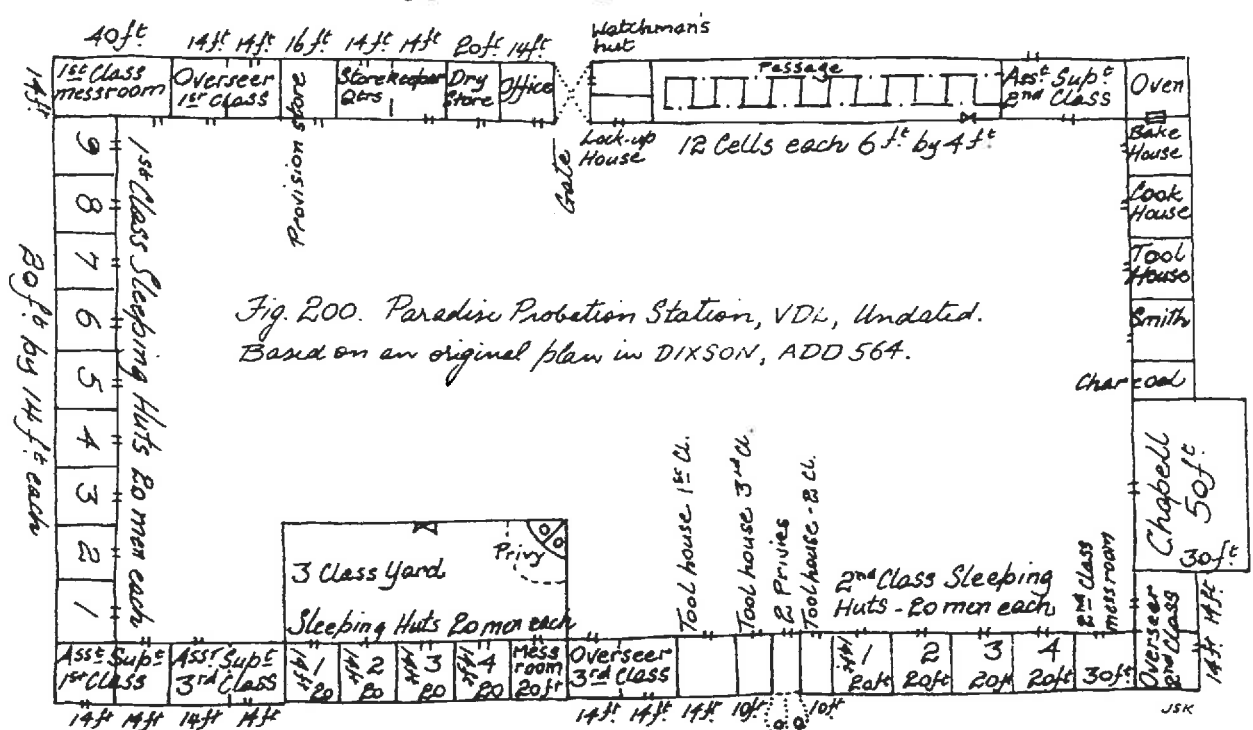 40ft 14ft 14ft 16ft 14ft 14ft 20ft 14ft
Watchman's
hut
14ft
1st Class
messroom
Overseer
1st Class
Provision store
Storekeeper
Qtrs
Dry
Store
Office
Gate
Lock-up
House
Passage
12 Cells each 6ft by 4ft
Asst Supt
2nd Class
Oven
Bake
House
Cook
House
Tool
House
Smith
Charcoal
Chapell
50ft
30ft
9
8
7
6
5
4
3
2
1
1st Class Sleeping Huts 20 men each
20ft by 14ft each
Fig. 200. Paradise Probation Station, VDL, Undated.
Based on an original plan in DIXSON, ADD 564.
3 Class Yard
Privy
Sleeping Huts 20 men each
Tool house 1st Cl.
Tool house 3rd Cl.
2 Privies
Toolhouse - 2 Cl.
2nd Class Sleeping
Huts - 20 men each
2nd Class
messroom
Asst Supt
1st Class
Asst Supt
3rd Class
14ft 1 20
14ft 2 20
14ft 3 20
14ft 4 20
Mess
room
20ft
Overseer
3rd Class
14ft 1 20ft
2 20ft
3 20ft
4 20ft
30ft
Overseer
2nd Class
14ft 14ft
14ft 14ft 14ft 14ft
14ft 14ft 14ft 10ft 10ft
JSK